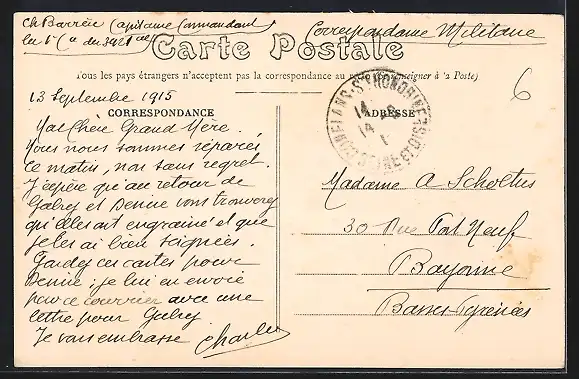 Ch Barrère Capitaine Commandant
la 1e Cie du 392e
Correspondance Militaire
Carte Postale
Tous les pays étrangers n'acceptent pas la correspondance au (se renseigner à la Poste)
13 Septembre 1915
CORRESPONDANCE
ADRESSE
6
Ma Chère Grand Mère.
Nous nous sommes séparés
ce matin, non sans regret.
J'espère qu'au retour de
Gaby et Denise vous trouverez
qu'elles ont engraissé et que
je les ai bien soignées.
Gardez ces cartes pour
Denise; je lui en envoie
par ce courrier avec une
lettre pour Gaby.
Je vous embrasse Charles
Madame A Scholtus
30 Rue Port Neuf
Bayonne
Basses-Pyrénées
CONFLANS-STE HONORINE
SEINE-ET-OISE